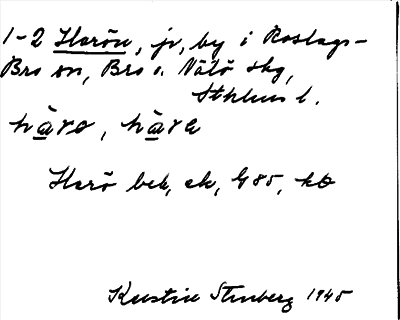 1-2 Harön, jr, by i Roslags-
Bro sn, Bro o. Vätö skg,
Sthlms l.
hàrø, hàra
Harö bek, ek, G85, kø
Kerstin Stenberg 1945